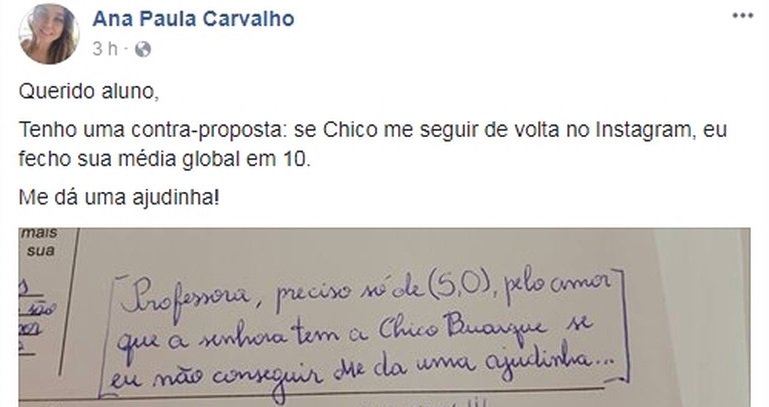 Ana Paula Carvalho
3 h ·
Querido aluno,
Tenho uma contra-proposta: se Chico me seguir de volta no Instagram, eu
fecho sua média global em 10.
Me dá uma ajudinha!
mais
sua
são
[Professora, preciso só de (5,0), pelo amor
que a senhora tem a Chico Buarque se
eu não conseguir Me da uma ajudinha...]